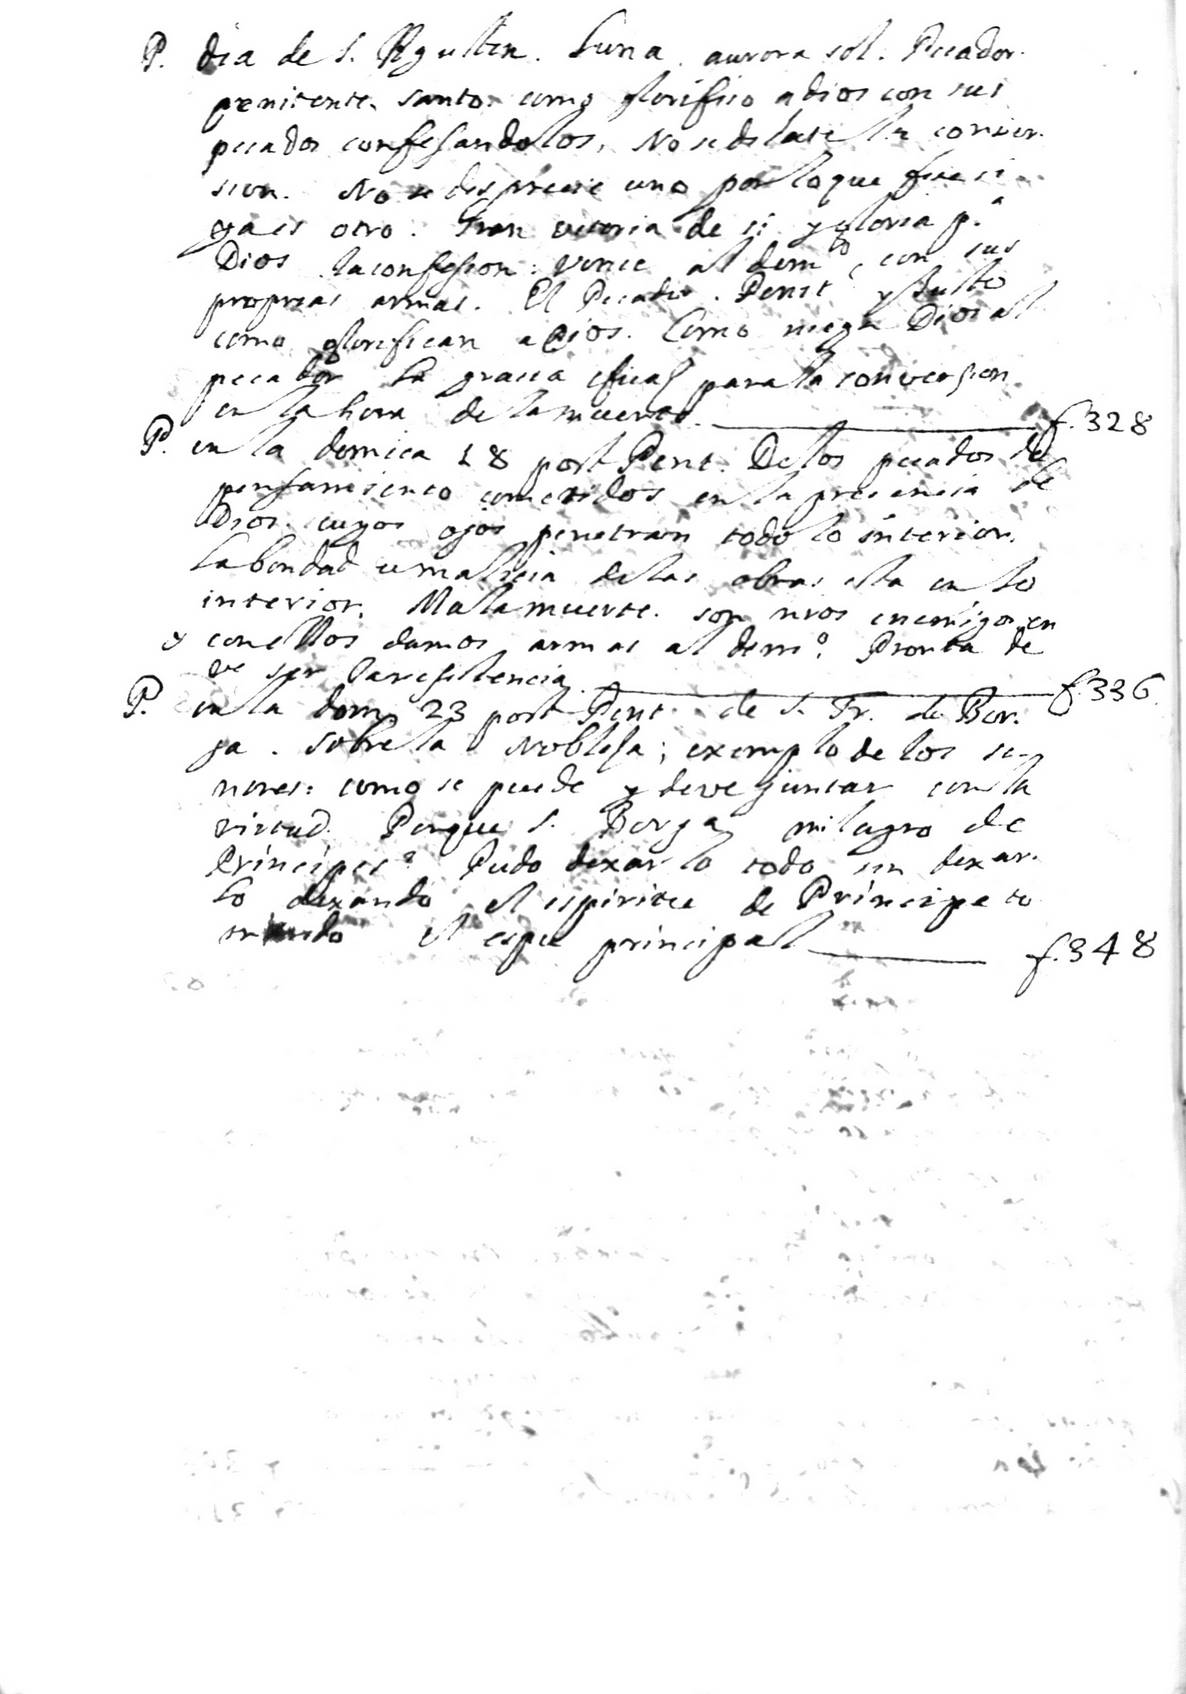 P. dia de S. Agustin. Luna. aurora sol. Pecador.
penitente. santo. como glorifico a dios con sus
pecados confesandolos, No se dilate la conver.
sion. No se desprecie uno por lo que fue si
ya es otro. Gran vitoria de si y gloria p.ª
Dios la confession: vence al demº, con sus
propias armas. El Pecador. Penit. y Justo
como glorifican a Dios. Como niega Dios al
pecador la gracia eficaz para la conversion
en la hora de la muerte. f. 328
P. en la domica 18 post Pent. De los pecados de
pensamiento cometidos en la presencia de
Dios. cuyos ojos penetran todo lo interior.
La bondad u malicia de las obras esta en lo
interior. Mala muerte. son nros enemigos en
y con ellos damos armas al demº. Pronta de
ve ser la resistencia f. 336.
P. en la dom. 23 post Pent. de S. Fr. de Bor.
ja. Sobre la Noblesa; exemplo de los se-
nores: como se puede y deve juntar con la
virtud. Porque S. Borja milagro de
Principes? Pudo dexarlo todo sin dexar.
lo dexando el espiritu de Principe to
mando el espu principal f. 348